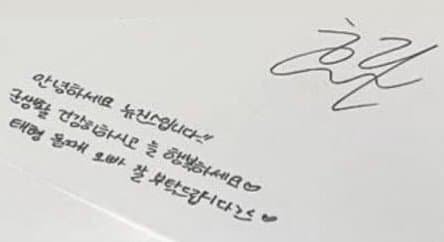 안녕하세요 뉴진스입니다..!!
군생활 건강히하시고 늘 행복하세요♡
태형 둘째 오빠 잘 부탁드립니다><♥